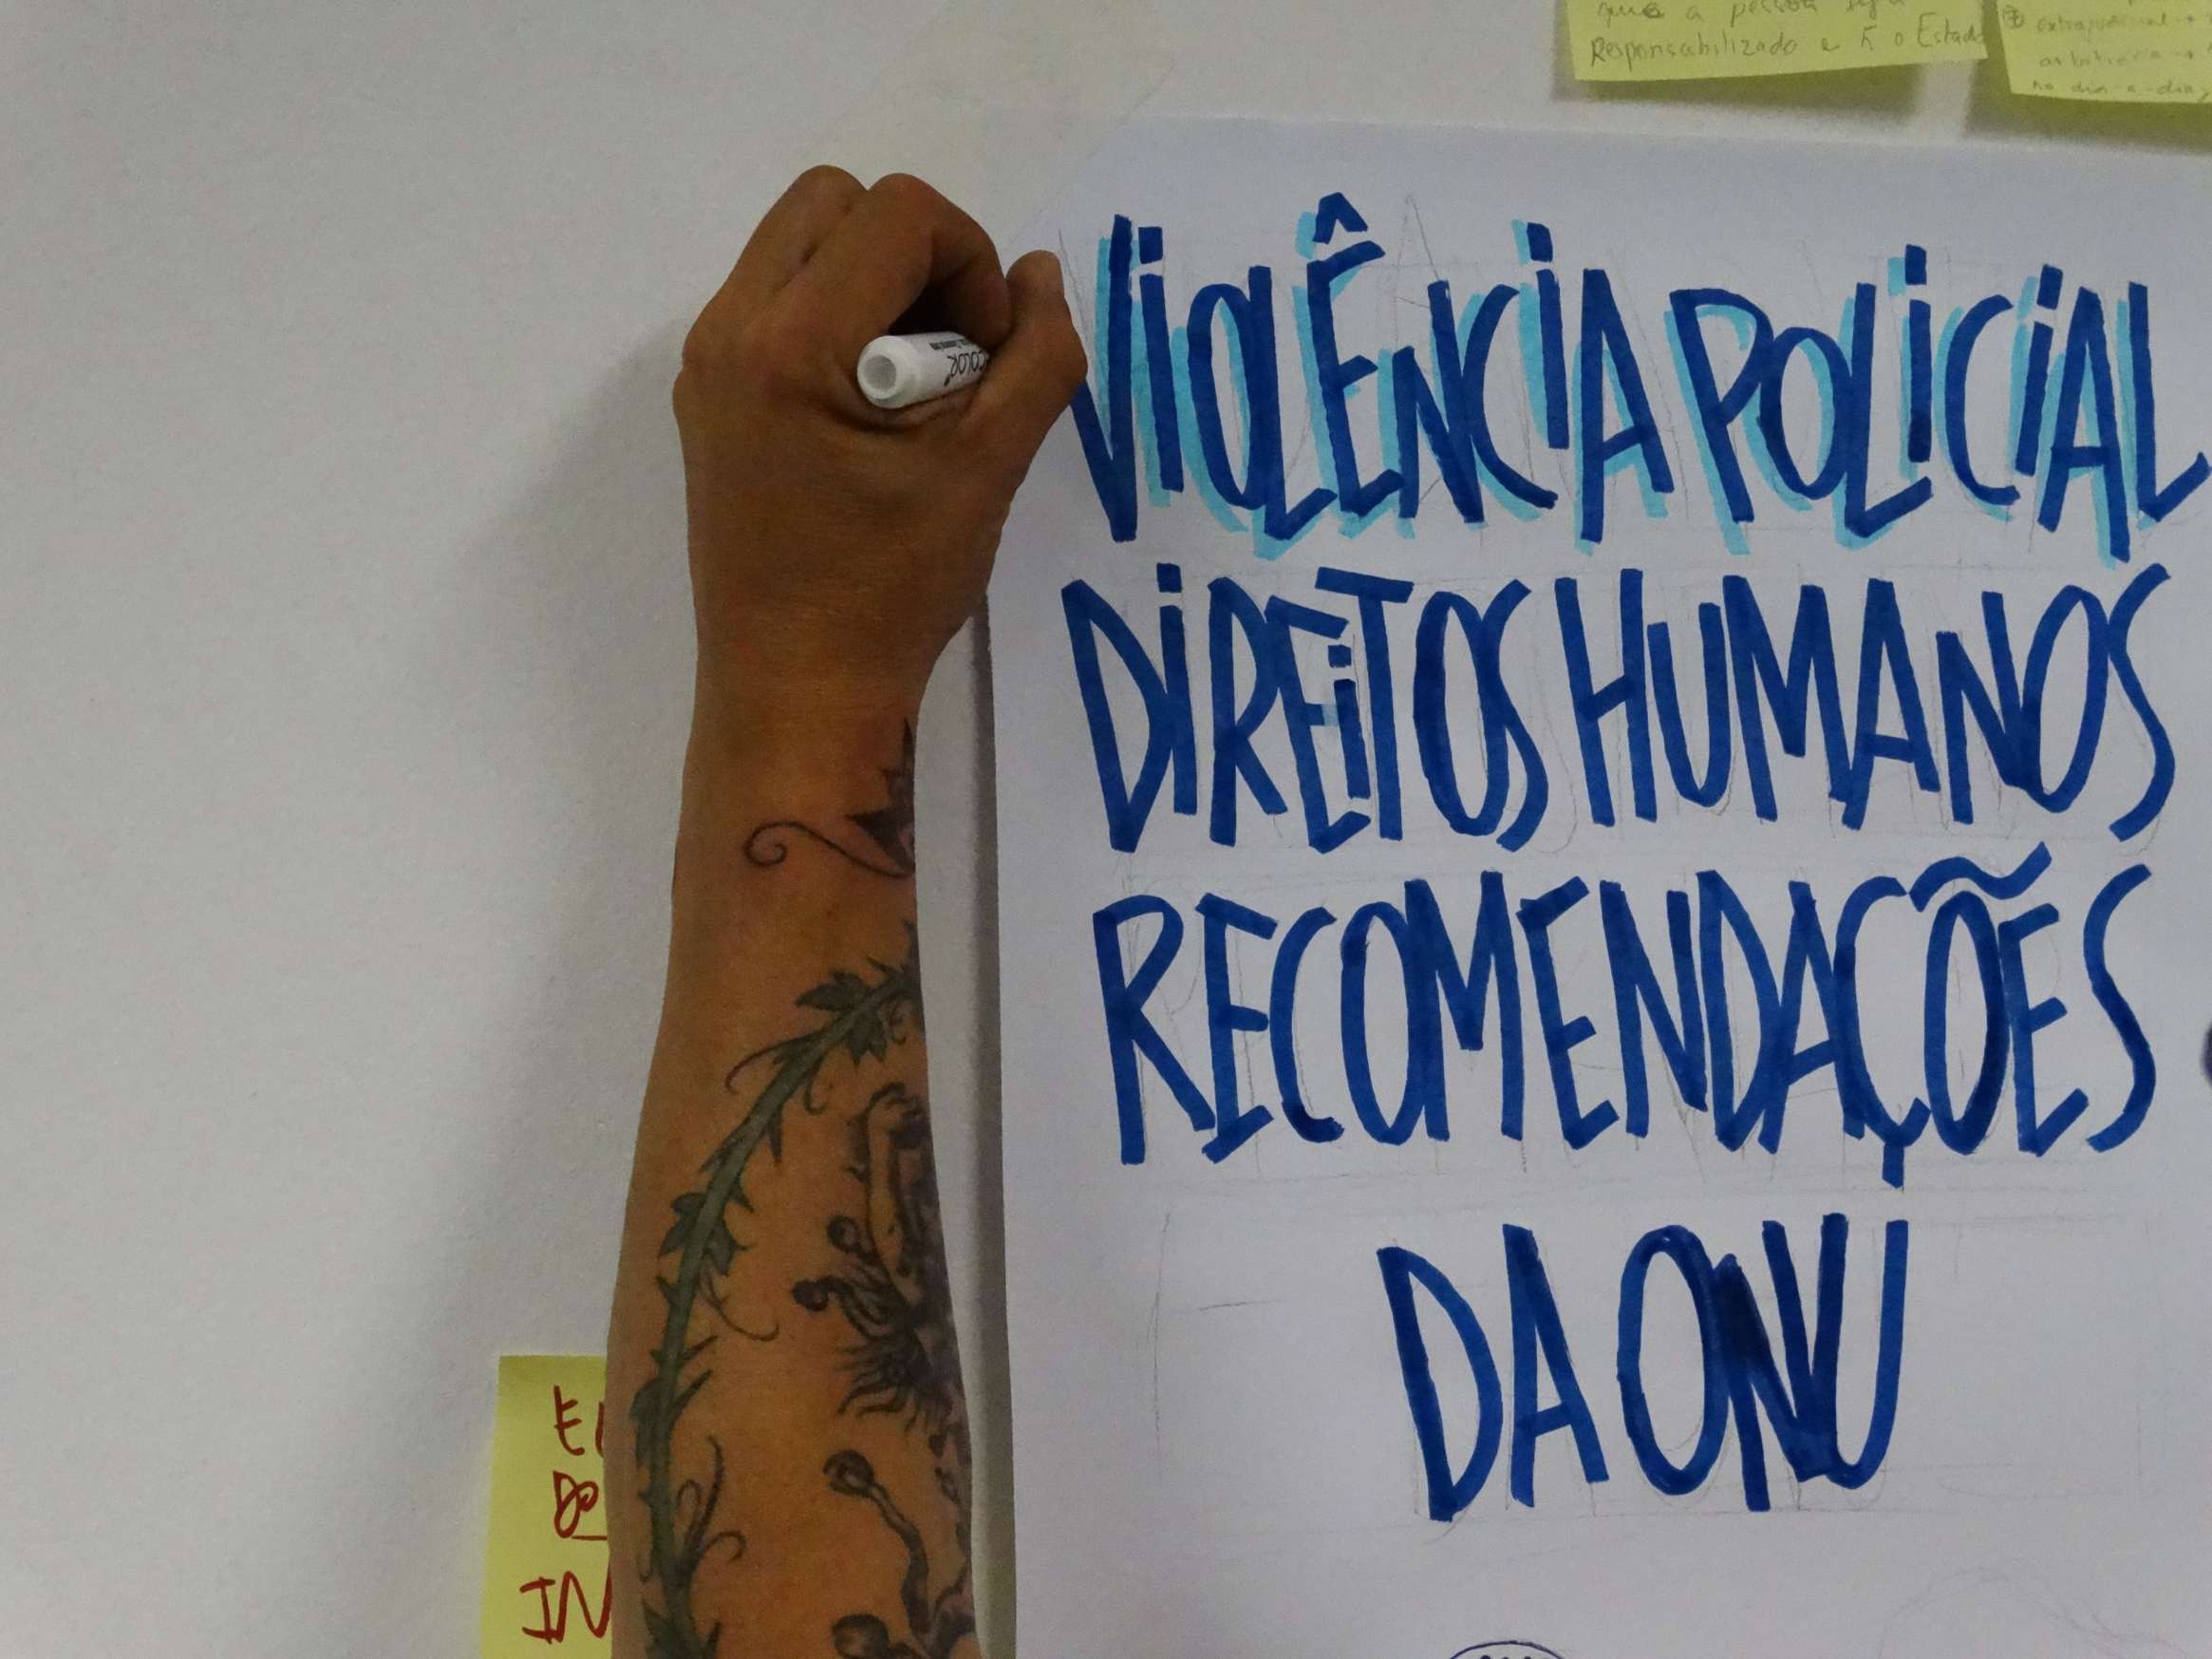 que a pessoa seja
Responsabilizado e ñ o Estado
extrajudicial
arbitrária
no dia-a-dia,
COLOR
VIOLÊNCIA POLICIAL
DIREITOS HUMANOS
RECOMENDAÇÕES
DA ONU
DO
IN